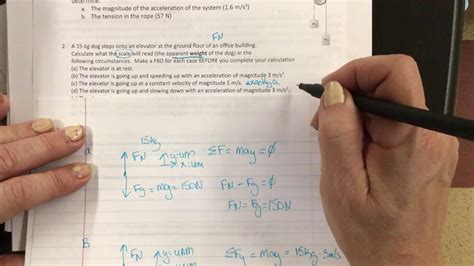 Determine:
a. The magnitude of the acceleration of the system (1.6 m/s²)
b. The tension in the rope (57 N)
FN
2. A 15-kg dog steps onto an elevator at the ground floor of an office building.
Calculate what the scale will read (the apparent weight of the dog) in the
following circumstances. Make a FBD for each case BEFORE you complete your calculation
(a) The elevator is at rest.
(b) The elevator is going up and speeding up with an acceleration of magnitude 3 m/s².
(c) The elevator is going up at a constant velocity of magnitude 5 m/s.
(d) The elevator is going up and slowing down with an acceleration of magnitude 3 m/s².
15kg
a FN ΣF = may = 0
Fg = mg = 150N FN - Fg = 0
FN = Fg = 150N
B FN ΣFy = may = 15kg · 3m/s